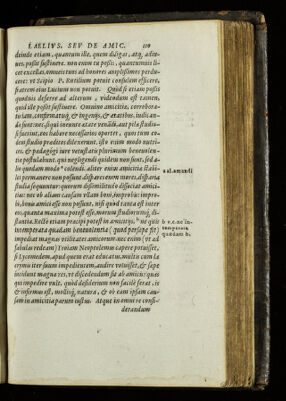 LAELIVS, SEV DE AMIC. 110
deinde etiam, quantum ille, quem diligas, atq; adiu-
ues, possit sustinere. non enim tu possis, quantumuis li-
cet excellas, omneis tuos ad honores amplissimos perdu-
cere: ut Scipio P. Rutilium potuit consulem efficere,
fratrem eius Lucium non potuit. Quod si etiam possis
quiduis deferre ad alterum, uidendum est tamen,
quid ille possit sustinere. Omnino amicitiae, corrobora-
tis iam, confirmatisq; & ingenijs, & aetatibus, iudican-
dae sunt: nec, si qui ineunte aetate uenandi, aut pilae studio-
si fuerint, eos habere necessarios oportet, quos tum eo-
dem studio praeditos dilexerunt. isto enim modo nutri-
ces, & paedagogi iure uetustatis plurimum beneuolen-
tiae postulabunt. qui negligendi quidem non sunt, sed a-
lio quodam modo colendi. aliter enim amicitiae stabi-
les permanere non possunt. dispares enim mores, disparia
studia sequuntur: quorum dissimilitudo dissociat amici-
tias: nec ob aliam causam ullam boni, improbis: impro-
bi, bonis amici esse non possunt, nisi quod tanta est inter
eos, quanta maxima potest esse, morum studiorumq; di-
stantia. Recte etiam praecipi potest in amicitijs, ne
intemperata quaedam beneuolentia (quod persaepe fit)
impediat magnas utilitates amicorum. nec enim (ut ad
fabulas redeam) Troiam Neoptolemus capere potuisset,
si Lycomedem, apud quem erat educatus, multis cum la-
crymis iter suum impedientem, audire uoluisset. & saepe
incidunt magnae res, ut discedendum sit ab amicis: quas
qui impedire uult, quod desiderium non facile ferat, is
& infirmus est, mollisq; natura, & ob eam ipsam cau-
sam in amicitia parum iustus. Atque in omni re consi-
derandum
a al. amandi